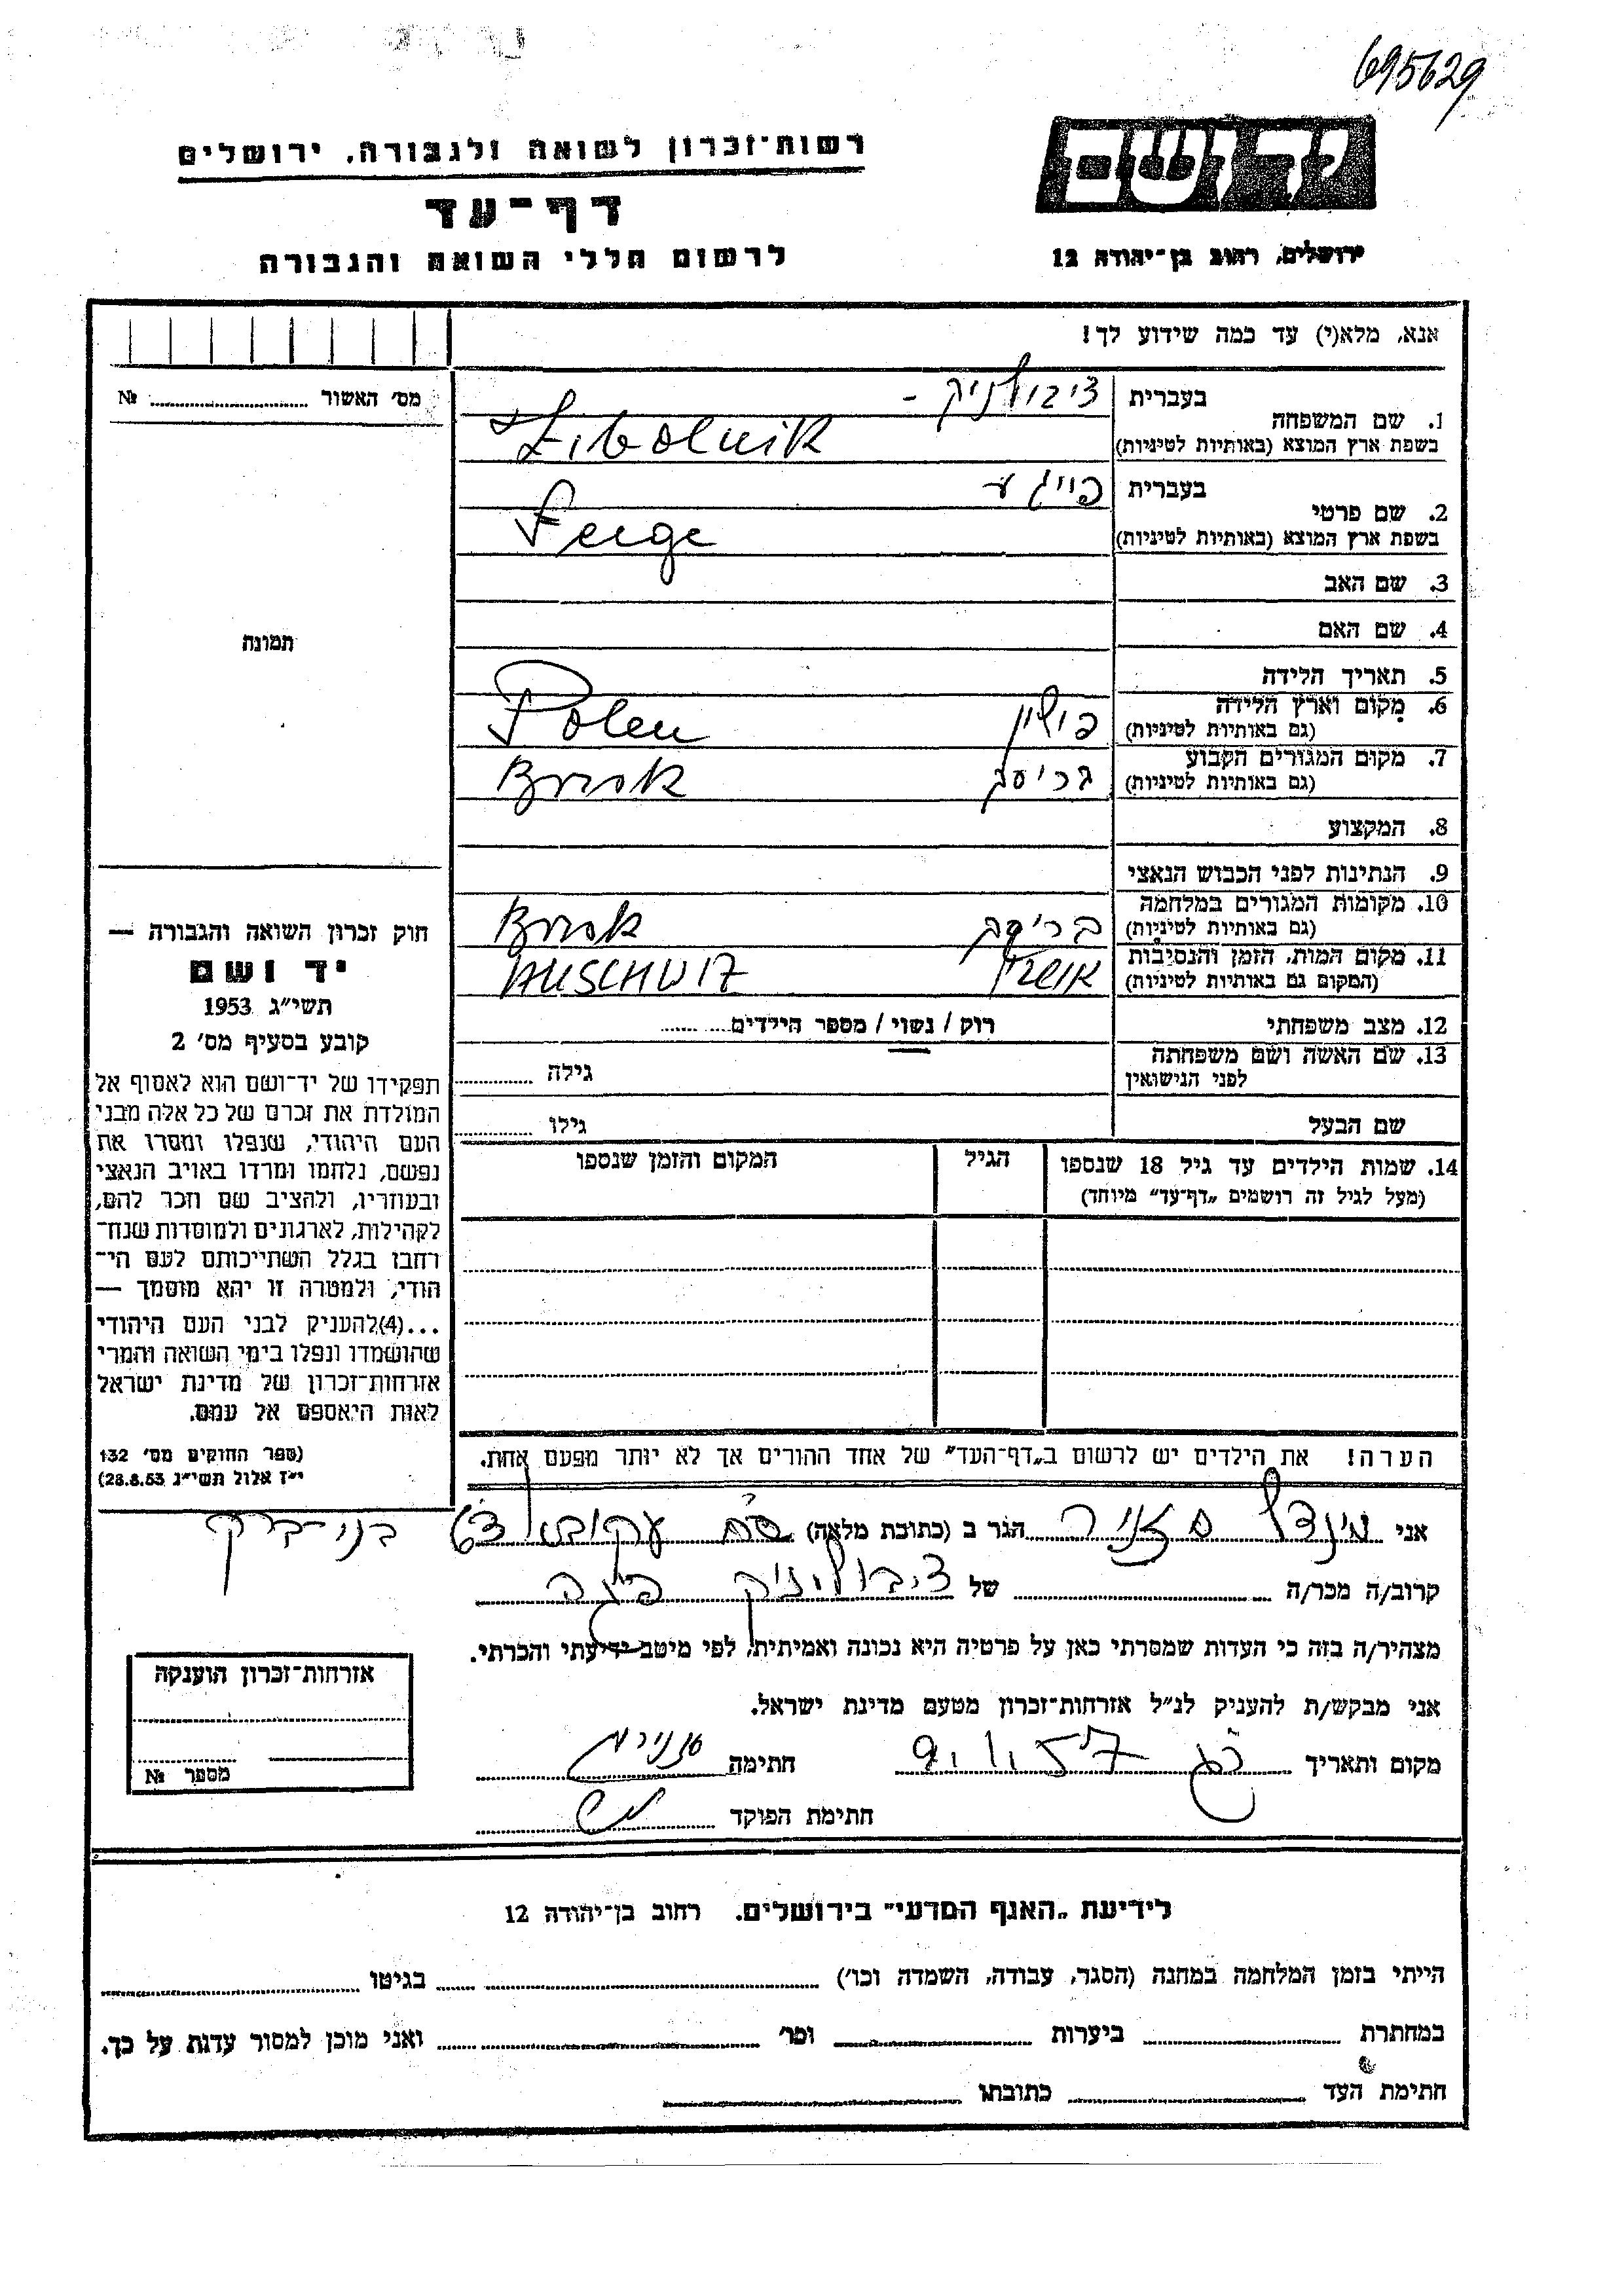 695629
רשות־זכרון לשואה ולגבורה, ירושלים
יד ושם
דף־עד
לרשום חללי השואה והגבורה
ירושלים, רחוב בן־יהודה 12
אנא, מלא(י) עד כמה שידוע לך!
מס׳ האשור № 
1. שם המשפחה
בעברית ציבולניק -
בשפת ארץ המוצא (באותיות לטיניות) Zibolnik
2. שם פרטי
בעברית פייגע
בשפת ארץ המוצא (באותיות לטיניות) Feige
3. שם האב
4. שם האם
תמונה
5. תאריך הלידה
6. מקום וארץ הלידה
(גם באותיות לטיניות) פוילין Polen
7. מקום המגורים הקבוע
(גם באותיות לטיניות) בריסק Brisk
8. המקצוע
9. הנתינות לפני הכבוש הנאצי
10. מקומות המגורים במלחמה
(גם באותיות לטיניות) בריסק Brisk
11. מקום המות, הזמן והנסיבות
(המקום גם באותיות לטיניות) AUSCHWITZ
12. מצב משפחתי רוק / נשוי / מספר הילדים
13. שם האשה ושם משפחתה
לפני הנישואין גילה
שם הבעל גילו
14. שמות הילדים עד גיל 18 שנספו הגיל המקום והזמן שנספו
(מעל לגיל זה רושמים „דף־עד” מיוחד)
הערה! את הילדים יש לרשום ב„דף־העד” של אחד ההורים אך לא יותר מפעם אחת.
חוק זכרון השואה והגבורה —
יד ושם
תשי״ג 1953
קובע בסעיף מס׳ 2
תפקידו של יד־ושם הוא לאסוף אל
המולדת את זכרם של כל אלה מבני
העם היהודי, שנפלו ומסרו את
נפשם, נלחמו ומרדו באויב הנאצי
ובעוזריו, ולהציב שם וזכר להם,
לקהילות, לארגונים ולמוסדות שנח־
רחבו בגלל השתייכותם לעם הי־
הודי, ולמטרה זו יהא מוסמך —
...(4)להעניק לבני העם היהודי
שהושמדו ונפלו בימי השואה והמרי
אזרחות־זכרון של מדינת ישראל
לאות היאספם אל עמם.
(ספר החוקים מס׳ 132
י״ז אלול תשי״ג 28.8.53)
אני מינדל הגר ב (כתובת מלאה) בני-ברק
קרוב/ה מכר/ה של ציבולניק פיגה
מצהיר/ה בזה כי העדות שמסרתי כאן על פרטיה היא נכונה ואמיתית, לפי מיטב ידיעתי והכרתי.
אני מבקש/ת להעניק לנ״ל אזרחות־זכרון מטעם מדינת ישראל.
מקום ותאריך חתימה
חתימת הפוקד
אזרחות־זכרון הוענקה
מספר №
לידיעת „האגף המדעי” בירושלים. רחוב בן־יהודה 12
הייתי בזמן המלחמה במחנה (הסגר, עבודה, השמדה וכו׳) בגיטו
במחתרת ביערות וכו׳ ואני מוכן למסור עדות על כך.
חתימת העד כתובתו